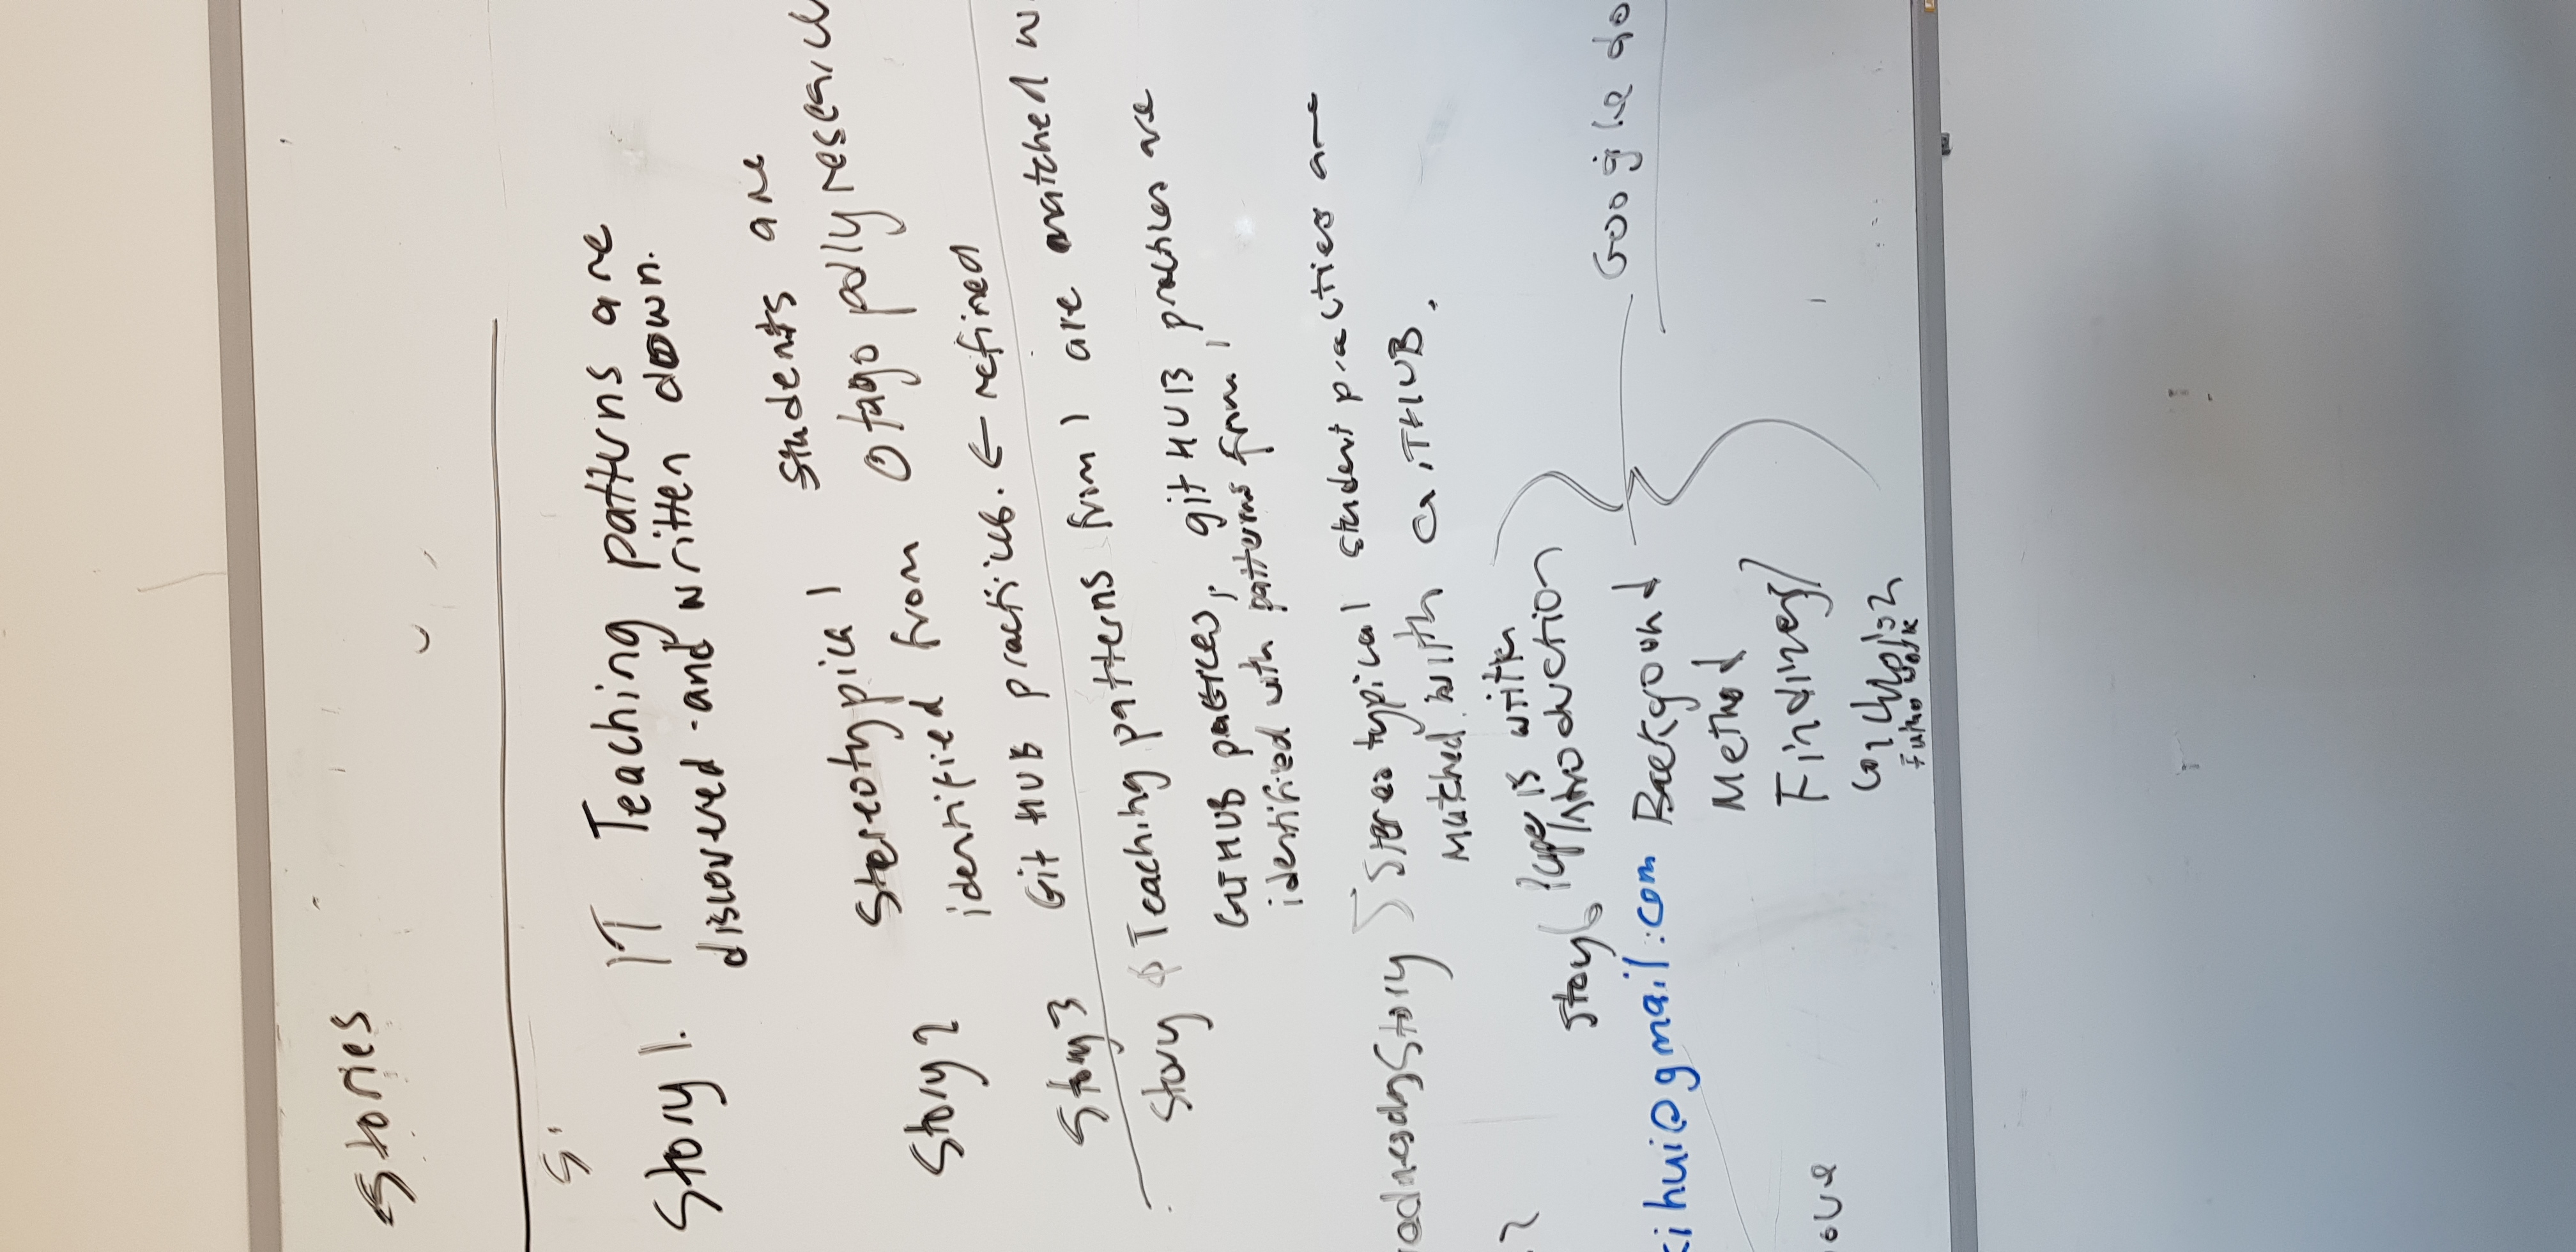 Stories
S
Story 1. IT Teaching patterns are
discovered and written down.
Stereotypical students are
Story 2 identified from Otago polly research
Story 3 Git HUB practices. ← refined
Story Teaching patterns from 1 are matched w
GITHUB pactices, gitHUB practices are
identified with patterns from 1
ednesday Story 5 Stereotypical student practies are
Matched with GITHUB.
?
Story 6 Paper is written
Introduction
Google do
kihui@gmail.com Background
Method
Findings/
ove
Conclusion
Future work